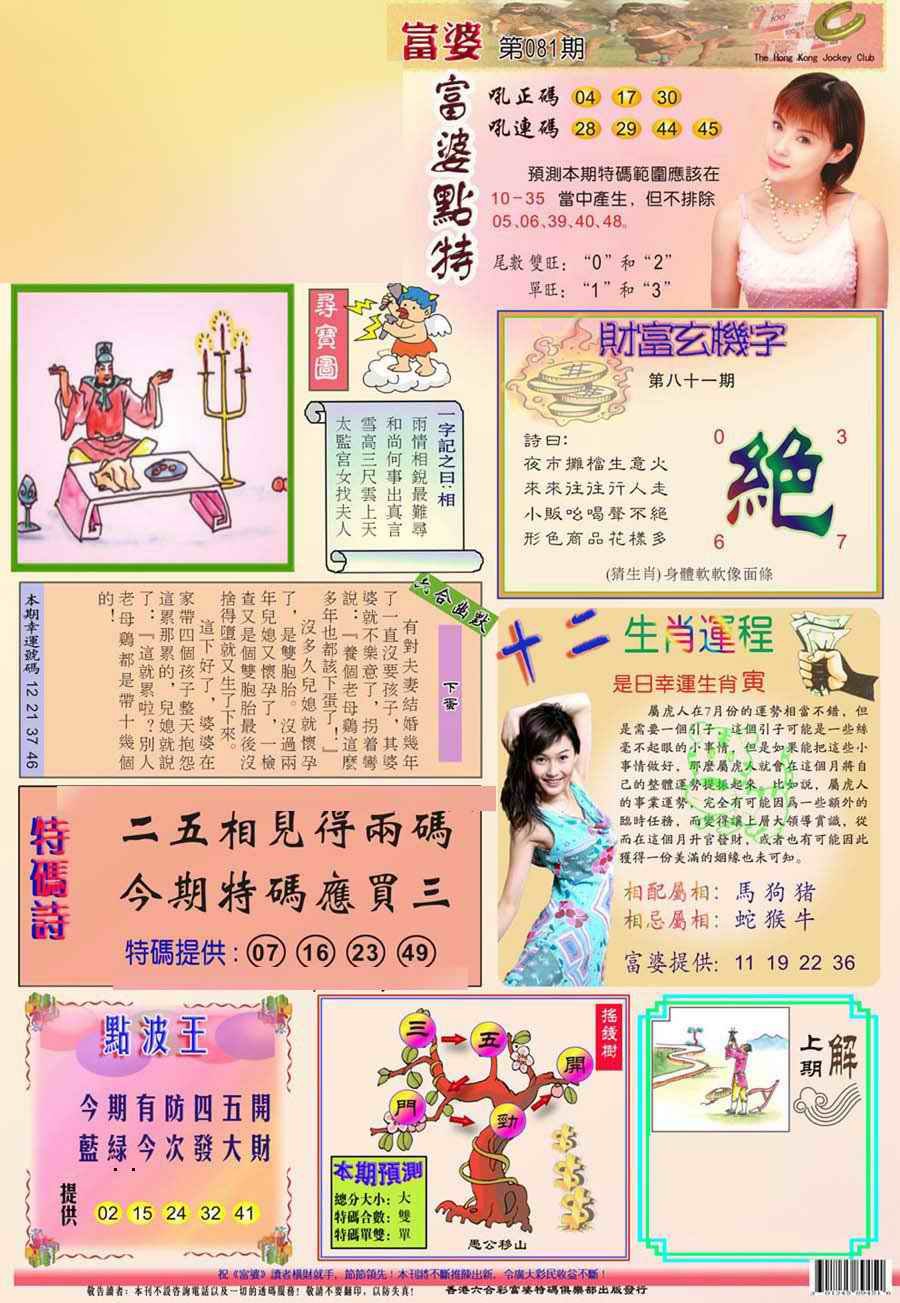 富婆 第081期
The Hong Kong Jockey Club
富婆點特
吼正碼 04 17 30
吼連碼 28 29 44 45
預測本期特碼範圍應該在
10-35 當中產生，但不排除
05、06、39、40、48。
尾數雙旺：“0”和“2”
單旺：“1”和“3”
尋寶圖
一字記之曰：相
雨情相銳最難尋
和尚何事出真言
雪高三尺雲上天
太監宮女找夫人
財富玄機字
第八十一期
詩曰：
夜市攤檔生意火
來來往往行人走
小販吆喝聲不絕
形色商品花樣多
0 3
絕
6 7
(猜生肖)身體軟軟像面條
六合幽默
下蛋
有對夫妻結婚幾年
了一直沒要孩子，其婆
婆就不樂意了，拐着彎
説：『養個老母鷄這麼
多年也都該下蛋了！』
沒多久兒媳就懷孕
了，是雙胞胎。沒過兩
年兒媳又懷孕了，一檢
查又是個雙胞胎最後沒
捨得墮就又生了下來。
這下好了，婆婆在
家帶四個孩子整天抱怨
這累那累的，兒媳就說
了：『這就累啦？別人
老母鷄都是帶十幾個
的！
本期幸運號碼 12 21 37 46
十二生肖運程
是日幸運生肖寅
屬虎人在7月份的運勢相當不錯，但
是需要一個引子，這個引子可能是一些絲
毫不起眼的小事情，但是如果能把這些小
事情做好，那麼屬虎人就會在這個月將自
己的整體運勢提振起來。比如說，屬虎人
的事業運勢，完全有可能因爲一些額外的
臨時任務，而變得讓上層大領導賞識，從
而在這個月升官發財，或者也有可能因此
獲得一份美滿的姻緣也未可知。
相配屬相：馬狗猪
相忌屬相：蛇猴牛
富婆提供：11 19 22 36
特碼詩
二五相見得兩碼
今期特碼應買三
特碼提供：07 16 23 49
點波王
今期有防四五開
藍綠今次發大財
提供 02 15 24 32 41
搖錢樹
三 五 門 勁 開
本期預測
總分大小：大
特碼合數：雙
特碼單雙：單
愚公移山
上期解
祝《富婆》讀者橫財就手，節節領先！本刊將不斷推陳出新，令廣大彩民收益不斷！
敬告讀者：本刊不設咨詢電話以及一切的透碼服務！敬請不要翻印，以防失真！ 香港六合彩富婆特碼俱樂部出版發行